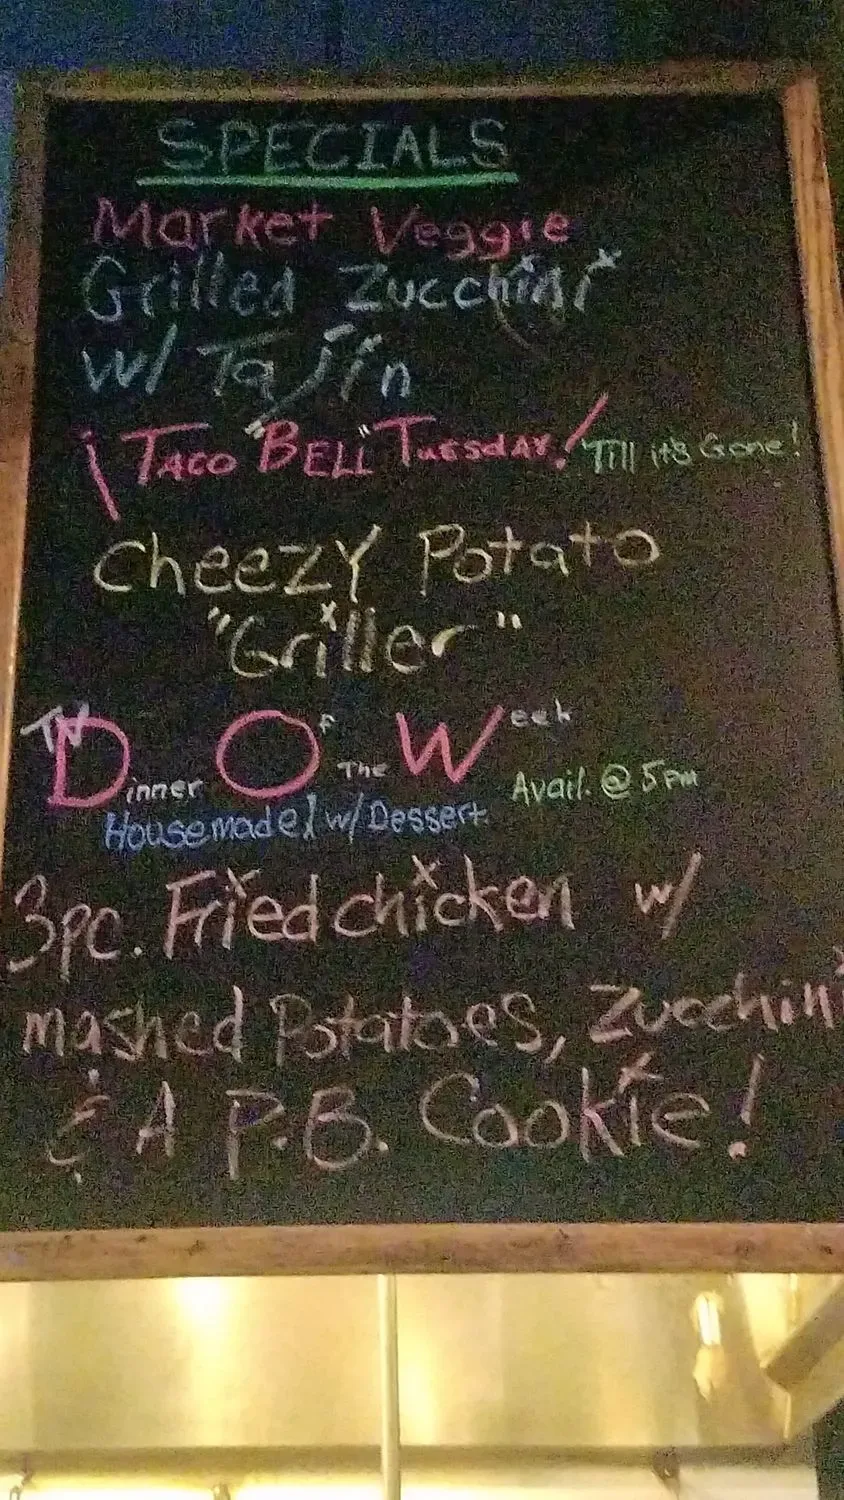 SPECIALS
Market Veggie
Grilled Zucchini
w/ Tajín
¡TACO "BELL" TUESDAY! Till it's Gone!
Cheezy Potato
"Griller"
Dinner Of The Week
Avail. @ 5pm
Housemade w/ Dessert
3pc. Fried chicken w/
mashed Potatoes, Zucchini
& A P.B. Cookie!